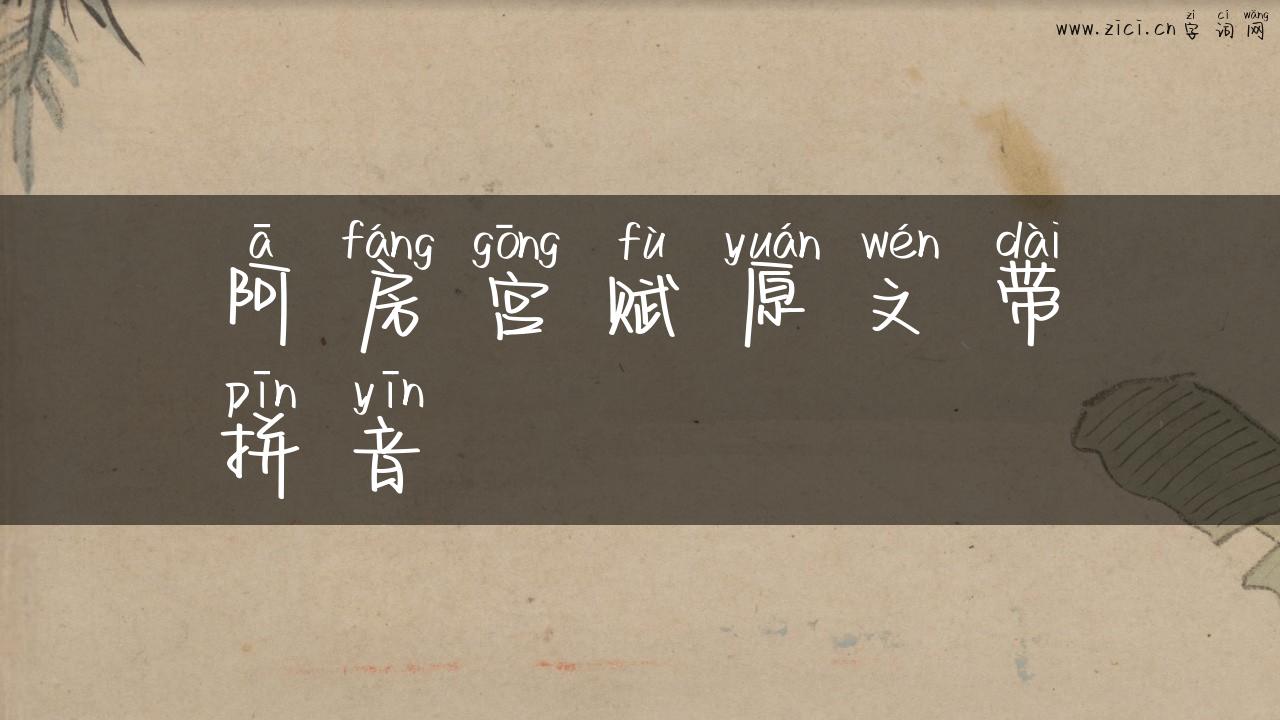 zì cí wǎng
www.zici.cn 字 词 网
ā fáng gōng fù yuán wén dài
阿 房 宫 赋 原 文 带
pīn yīn
拼 音